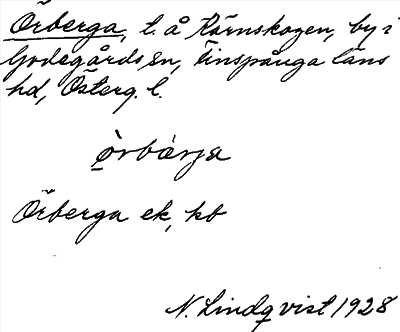 Örberga, t. å Kärnskogen, by i
Godegårds sn, Finspånga läns
hd, Österg. l.
ò̱rbàrja
Örberga ek, kb
N. Lindqvist 1928